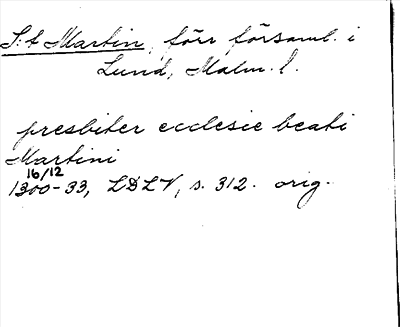 S:t Martin, förr församl. i
Lund, Malm. l.
presbiter ecclesie beati
Martini
16/12
1300-33, LDLV, s. 312. orig.